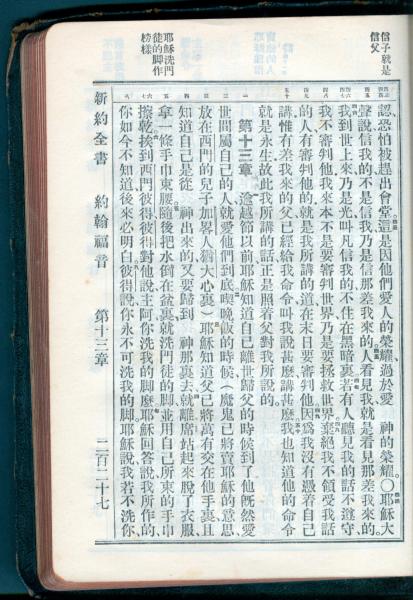 信子就是
信父
耶穌洗門
徒的脚作
榜樣
認恐怕被趕出會堂這是因他們愛人的榮耀過於愛 神的榮耀〇耶穌大
聲說信我的不是信我乃是信那差我來的人看見我就是看見那差我來的
我到世上來乃是光叫凡信我的不住在黑暗裏若有人聽見我的話不遵守
我不審判他我來本不是要審判世界乃是要拯救世界棄絕我不領受我話
的人有審判他的就是我所講的道在末日要審判他因爲我沒有憑着自己
講惟有差我來的父已經給我命令叫我說甚麼講甚麼我也知道他的命令
就是永生故此我所講的話正是照着父對我所說的
第十三章 逾越節以前耶穌知道自己離世歸父的時候到了他旣然愛
世間屬自己的人就愛他們到底喫晚飯的時候(魔鬼已將賣耶穌的意思
放在西門的兒子加畧人猶大心裏)耶穌知道父已將萬有交在他手裏且
知道自己是從 神出來的又要歸到 神那裏去就離席站起來脫了衣服
拿一條手巾束腰隨後把水倒在盆裏就洗門徒的脚並用自己所束的手巾
擦乾挨到西門彼得彼得對他說主阿你洗我的脚麼耶穌回答說我所作的
你如今不知道後來必明白彼得說你永不可洗我的脚耶穌說我若不洗你
新約全書 約翰福音 第十三章 二百二十七